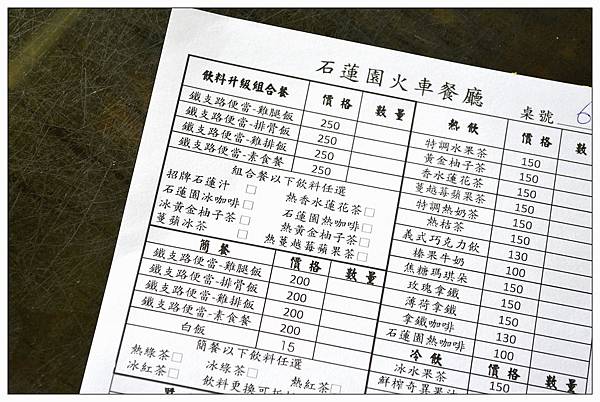 石蓮園火車餐廳 桌號 6
飲料升級組合餐 價格 數量
鐵支路便當-雞腿飯 250
鐵支路便當-排骨飯 250
鐵支路便當-雞排飯 250
鐵支路便當-素食餐 250
組合餐以下飲料任選
招牌石蓮汁□ 熱香水蓮花茶□
石蓮園冰咖啡□ 石蓮園熱咖啡□
冰黃金柚子茶□ 熱黃金柚子茶□
蔓蘋冰茶□ 熱蔓越莓蘋果茶□
簡餐 價格 數量
鐵支路便當-雞腿飯 200
鐵支路便當-排骨飯 200
鐵支路便當-雞排飯 200
鐵支路便當-素食餐 200
白飯 15
簡餐以下飲料任選
熱綠茶□ 冰綠茶□ 熱紅茶□
冰紅茶□
飲料更換可折
熱飲 價格 數
特調水果茶 150
黃金柚子茶 150
香水蓮花茶 150
蔓越莓蘋果茶 150
特調熱奶茶 150
熱桔茶 150
義式巧克力飲 130
榛果牛奶 100
焦糖瑪琪朵 150
玫瑰拿鐵 150
薄荷拿鐵 150
拿鐵咖啡 130
石蓮園熱咖啡 100
冷飲 價格 數
冰水果茶 150
鮮榨奇異果汁